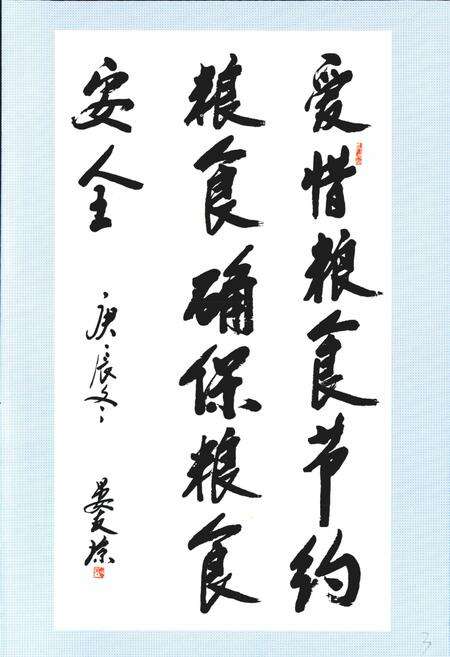 爱惜粮食节约
粮食确保粮食
安全
庚辰冬
晏友琼
3